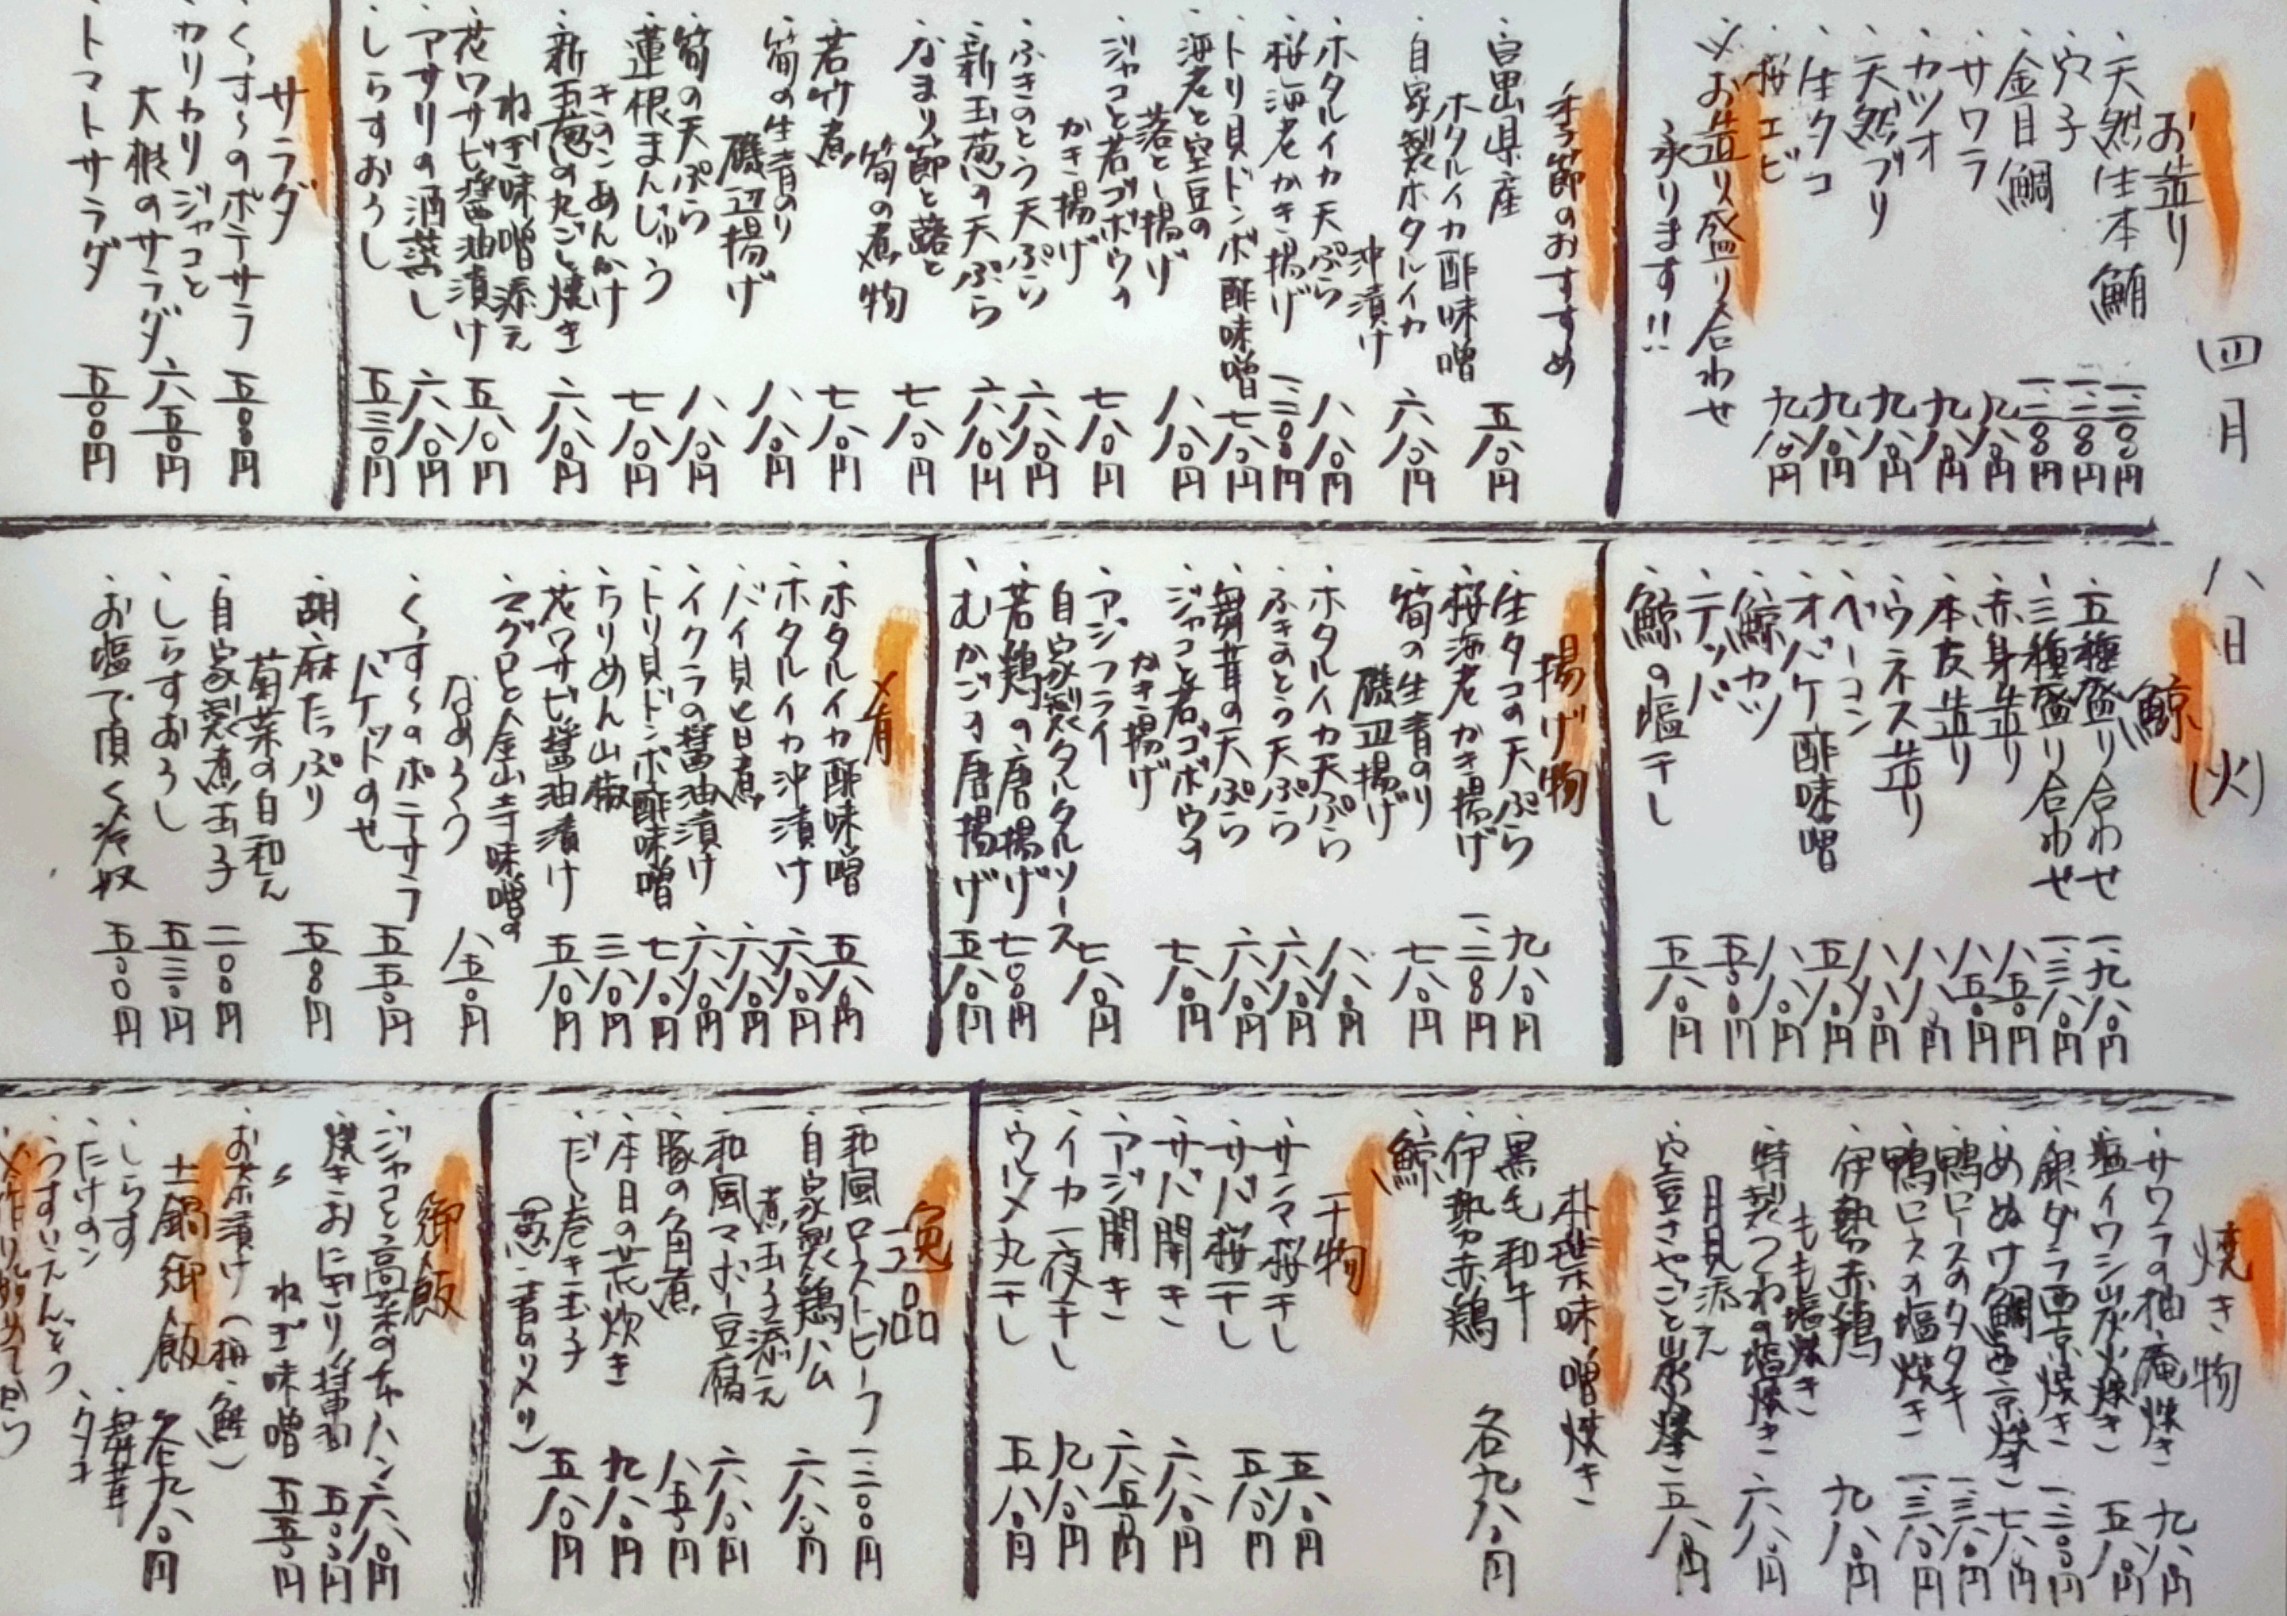 四月 八日(火)
お造り
・天然生本鮪 一、二〇〇円
・穴子 一、二〇〇円
・金目鯛 一、二〇〇円
・サワラ 九八〇円
・カツオ 九八〇円
・天然ブリ 九八〇円
・生タコ 九八〇円
・桜エビ 九八〇円
※お造り盛り合わせ
承ります!!
季節のおすすめ
・富山県産
ホタルイカ酢味噌 五八〇円
・自家製ホタルイカ
沖漬け 六八〇円
・ホタルイカ天ぷら 八八〇円
・桜海老かき揚げ 一、二〇〇円
・トリ貝ドンボ酢味噌 七八〇円
・海老と空豆の
落とし揚げ 八八〇円
・ジャコと若ゴボウの
かき揚げ 七八〇円
・ふきのとう天ぷら 六八〇円
・新玉葱の天ぷら 六八〇円
・なまり節と蕗と
筍の煮物 七八〇円
・若竹煮 七八〇円
・筍の生青のり
磯辺揚げ 八八〇円
・筍の天ぷら 八八〇円
・蓮根まんじゅう
きのこあんかけ 七八〇円
・新玉葱の丸ごと焼き
ねぎ味噌添え 六八〇円
・花ワサビ醤油漬け 五八〇円
・アサリの酒蒸し 六八〇円
・しらすおろし 五三〇円
サラダ
・くっす〜のポテサラ 五〇〇円
・カリカリジャコと
大根のサラダ 六五〇円
・トマトサラダ 五〇〇円
鯨
・五種盛り合わせ 一、九八〇円
・三種盛り合わせ 一、三八〇円
・赤身造り 八五〇円
・本皮造り 八五〇円
・ウネス造り 八八〇円
・ベーコン 八八〇円
・オバケ酢味噌 五八〇円
・鯨カツ 八八〇円
・テッパ 五〇〇円
・鯨の塩干し 五八〇円
揚げ物
・生タコの天ぷら 九八〇円
・桜海老かき揚げ 一、二〇〇円
・筍の生青のり
磯辺揚げ 七八〇円
・ホタルイカ天ぷら 八八〇円
・ふきのとう天ぷら 六八〇円
・舞茸の天ぷら 六八〇円
・ジャコと若ゴボウの
かき揚げ 七八〇円
・アジフライ
自家製タルタルソース 七八〇円
・若鶏の唐揚げ 七〇〇円
・むかごの唐揚げ 五八〇円
肴
・ホタルイカ酢味噌 五八〇円
・ホタルイカ沖漬け 六八〇円
・バイ貝と旨煮 六八〇円
・イクラの醤油漬け 六八〇円
・トリ貝ドンボ酢味噌 七八〇円
・ちりめん山椒 三八〇円
・花ワサビ醤油漬け 五八〇円
・マグロと金山寺味噌の
なめろう 八五〇円
・くっす〜のポテサラ
バケットのせ 五五〇円
・胡麻たっぷり
菊菜の白和え 五〇〇円
・自家製煮玉子 二〇〇円
・しらすおろし 五三〇円
・お塩で頂く冷奴 五〇〇円
焼き物
・サワラの柚庵焼き 九八〇円
・塩イワシ炭火焼き 五八〇円
・銀ダラ西京焼き 一、二〇〇円
・めぬけ鯛西京焼き 七八〇円
・鴨ロースのタタキ 一、三八〇円
・鴨ロースの塩焼き 一、三八〇円
・伊勢赤鶏
もも塩焼き 九八〇円
・特製つくねの塩焼き
月見添え 六八〇円
・空豆さやごと炭火焼き 五八〇円
朴葉味噌焼き
・黒毛和牛
・伊勢赤鶏 各九八〇円
・鯨
干物
・サンマ桜干し 五八〇円
・サバ桜干し 五八〇円
・サバ開き 六八〇円
・アジ開き 六五〇円
・イカ一夜干し 九八〇円
・ウルメ丸干し 五八〇円
逸品
・和風ローストビーフ 一、二〇〇円
・自家製鶏ハム
煮玉子添え 六八〇円
・和風マーボー豆腐 六八〇円
・豚の角煮 八五〇円
・本日の荒炊き 九八〇円
・だし巻き玉子
(葱・青のり入り) 五八〇円
御飯
・ジャコと高菜のチャーハン 六八〇円
・焼きおにぎり 醤油 五〇〇円
〃 ねぎ味噌 五五〇円
・お茶漬け(梅・鮭)
土鍋御飯 各九八〇円
・しらす ・舞茸
・たけのこ ・タコ
・うすいえんどう